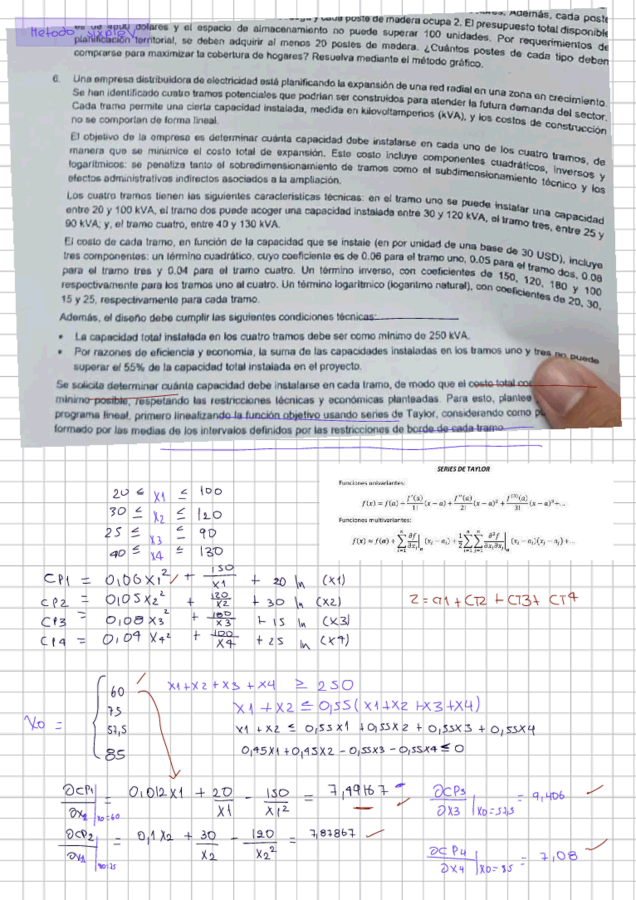 Además, cada poste
y cada poste de madera ocupa 2. El presupuesto total disponible
Metodo simplex
dólares y el espacio de almacenamiento no puede superar 100 unidades. Por requerimientos de
planificación territorial, se deben adquirir al menos 20 postes de madera. ¿Cuántos postes de cada tipo deben
comprarse para maximizar la cobertura de hogares? Resuelva mediante el método gráfico.
6. Una empresa distribuidora de electricidad está planificando la expansión de una red radial en una zona en crecimiento.
Se han identificado cuatro tramos potenciales que podrían ser construidos para atender la futura demanda del sector.
Cada tramo permite una cierta capacidad instalada, medida en kilovoltamperios (kVA), y los costos de construcción
no se comportan de forma lineal.
El objetivo de la empresa es determinar cuánta capacidad debe instalarse en cada uno de los cuatro tramos, de
manera que se minimice el costo total de expansión. Este costo incluye componentes cuadráticos, inversos y
logarítmicos: se penaliza tanto el sobredimensionamiento de tramos como el subdimensionamiento técnico y los
efectos administrativos indirectos asociados a la ampliación.
Los cuatro tramos tienen las siguientes características técnicas: en el tramo uno se puede instalar una capacidad
entre 20 y 100 kVA, el tramo dos puede acoger una capacidad instalada entre 30 y 120 kVA, el tramo tres, entre 25 y
90 kVA; y, el tramo cuatro, entre 40 y 130 kVA.
El costo de cada tramo, en función de la capacidad que se instale (en por unidad de una base de 30 USD), incluye
tres componentes: un término cuadrático, cuyo coeficiente es de 0.06 para el tramo uno, 0.05 para el tramo dos, 0.08
para el tramo tres y 0.04 para el tramo cuatro. Un término inverso, con coeficientes de 150, 120, 180 y 100
respectivamente para los tramos uno al cuatro. Un término logarítmico (logaritmo natural), con coeficientes de 20, 30,
15 y 25, respectivamente para cada tramo.
Además, el diseño debe cumplir las siguientes condiciones técnicas:
• La capacidad total instalada en los cuatro tramos debe ser como mínimo de 250 kVA.
• Por razones de eficiencia y economía, la suma de las capacidades instaladas en los tramos uno y tres no puede
superar el 55% de la capacidad total instalada en el proyecto.
Se solicita determinar cuánta capacidad debe instalarse en cada tramo, de modo que el costo total
mínimo posible, respetando las restricciones técnicas y económicas planteadas. Para esto, plantee
programa lineal, primero linealizando la función objetivo usando series de Taylor, considerando como
formado por las medias de los intervalos definidos por las restricciones de borde de cada tramo.
SERIES DE TAYLOR
Funciones univariantes:
f(x) = f(a) + f'(a)/1! (x − a) + f''(a)/2! (x − a)² + f⁽³⁾(a)/3! (x − a)³+...
Funciones multivariantes:
f(x) ≈ f(a) + ∑ⁿᵢ₌₁ ∂f/∂xᵢ|ₐ (xᵢ − aᵢ) + 1/2 ∑ⁿᵢ₌₁ ∑ⁿⱼ₌₁ ∂²f/∂xᵢ∂xⱼ|ₐ (xᵢ − aᵢ)(xⱼ − aⱼ)+...
20 ≤ X1 ≤ 100
30 ≤ X2 ≤ 120
25 ≤ X3 ≤ 90
40 ≤ X4 ≤ 130
CP1 = 0,06X1² + 150/X1 + 20 ln (X1)
CP2 = 0,05X2² + 120/X2 + 30 ln (X2)
CP3 = 0,08X3² + 180/X3 + 15 ln (X3)
CP4 = 0,04X4² + 100/X4 + 25 ln (X4)
Z = CT1 + CT2 + CT3 + CT4
X0 = { 60
75
57,5
85
X1+X2+X3+X4 ≥ 250
X1+X2 ≤ 0,55(X1+X2+X3+X4)
X1+X2 ≤ 0,55X1 + 0,55X2 + 0,55X3 + 0,55X4
0,45X1+0,45X2 − 0,55X3 − 0,55X4 ≤ 0
∂CP1/∂X1 |X0=60 = 0,012X1 + 20/X1 − 150/X1² = 7,49167
∂CP3/∂X3 |X0=57,5 = 9,406
∂CP2/∂X2 |X0=75 = 0,1X2 + 30/X2 − 120/X2² = 7,87867
∂CP4/∂X4 |X0=85 = 7,08